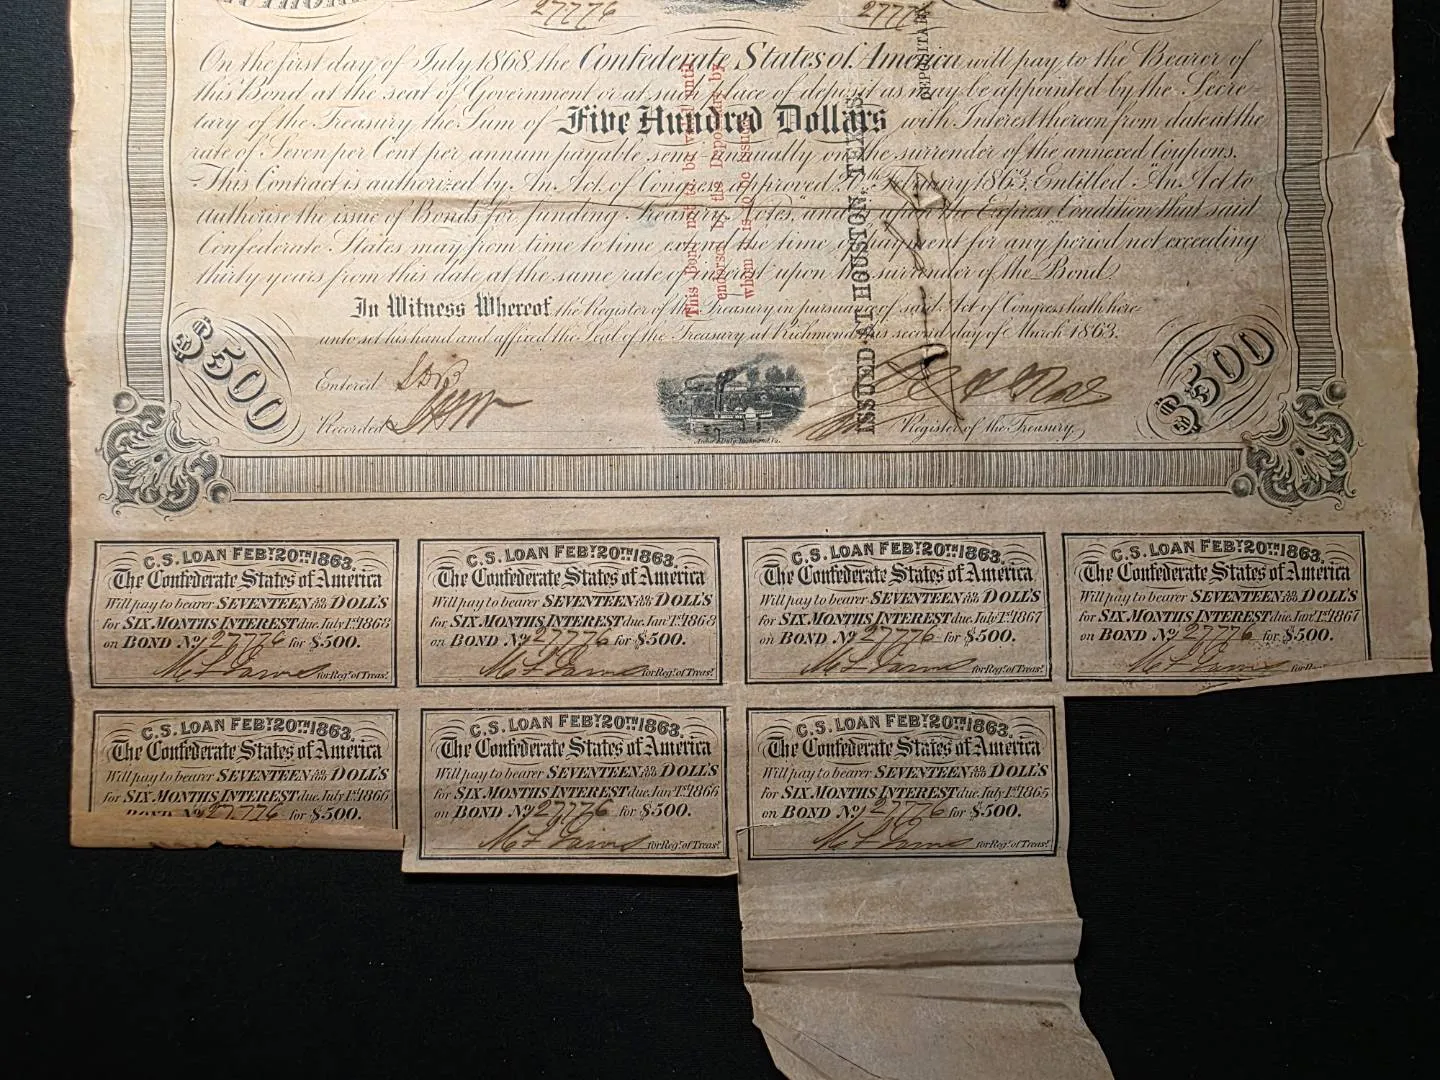 27776 27776
On the first day of July 1868, the Confederate States of America will pay to the Bearer of
this Bond at the seat of Government or at such place of deposit as may be appointed by the Secre-
tary of the Treasury the Sum of Five Hundred Dollars with Interest thereon from date at the
rate of Seven per Cent per annum payable semi annually on the surrender of the annexed Coupons.
This Contract is authorized by An Act of Congress approved 20th February 1863, Entitled "An Act to
authorise the issue of Bonds for funding Treasury Notes," and is upon the Express Condition that said
Confederate States may from time to time extend the time of payment for any period not exceeding
thirty years from this date at the same rate of interest upon the surrender of the Bond
In Witness Whereof the Register of the Treasury in pursuance of said Act of Congress hath here-
unto set his hand and affixed the Seal of the Treasury at Richmond this second day of March 1863.
This Bond not to be valid until
endorsed by the Depositary by
whom it is to be issued.
ISSUED AT HOUSTON, TEXAS
DEPOSITARY
$500
$500
Entered
Recorded
Register of the Treasury
Archer & Daly, Richmond Va.
C.S. LOAN FEBY. 20TH 1863.
The Confederate States of America
Will pay to bearer SEVENTEEN 50/100 DOLL'S
for SIX MONTHS INTEREST due July 1st 1868
on BOND No 27776 for $500.
for Regr. of Treasy.
C.S. LOAN FEBY. 20TH 1863.
The Confederate States of America
Will pay to bearer SEVENTEEN 50/100 DOLL'S
for SIX MONTHS INTEREST due Jany 1st 1868
on BOND No 27776 for $500.
for Regr. of Treasy.
C.S. LOAN FEBY. 20TH 1863.
The Confederate States of America
Will pay to bearer SEVENTEEN 50/100 DOLL'S
for SIX MONTHS INTEREST due July 1st 1867
on BOND No 27776 for $500.
for Regr. of Treasy.
C.S. LOAN FEBY. 20TH 1863.
The Confederate States of America
Will pay to bearer SEVENTEEN 50/100 DOLL'S
for SIX MONTHS INTEREST due Jany 1st 1867
on BOND No 27776 for $500.
for Reg
C.S. LOAN FEBY. 20TH 1863.
The Confederate States of America
Will pay to bearer SEVENTEEN 50/100 DOLL'S
for SIX MONTHS INTEREST due July 1st 1866
on BOND No 27776 for $500.
C.S. LOAN FEBY. 20TH 1863.
The Confederate States of America
Will pay to bearer SEVENTEEN 50/100 DOLL'S
for SIX MONTHS INTEREST due Jany 1st 1866
on BOND No 27776 for $500.
for Regr. of Treasy.
C.S. LOAN FEBY. 20TH 1863.
The Confederate States of America
Will pay to bearer SEVENTEEN 50/100 DOLL'S
for SIX MONTHS INTEREST due July 1st 1865
on BOND No 27776 for $500.
for Regr. of Treasy.